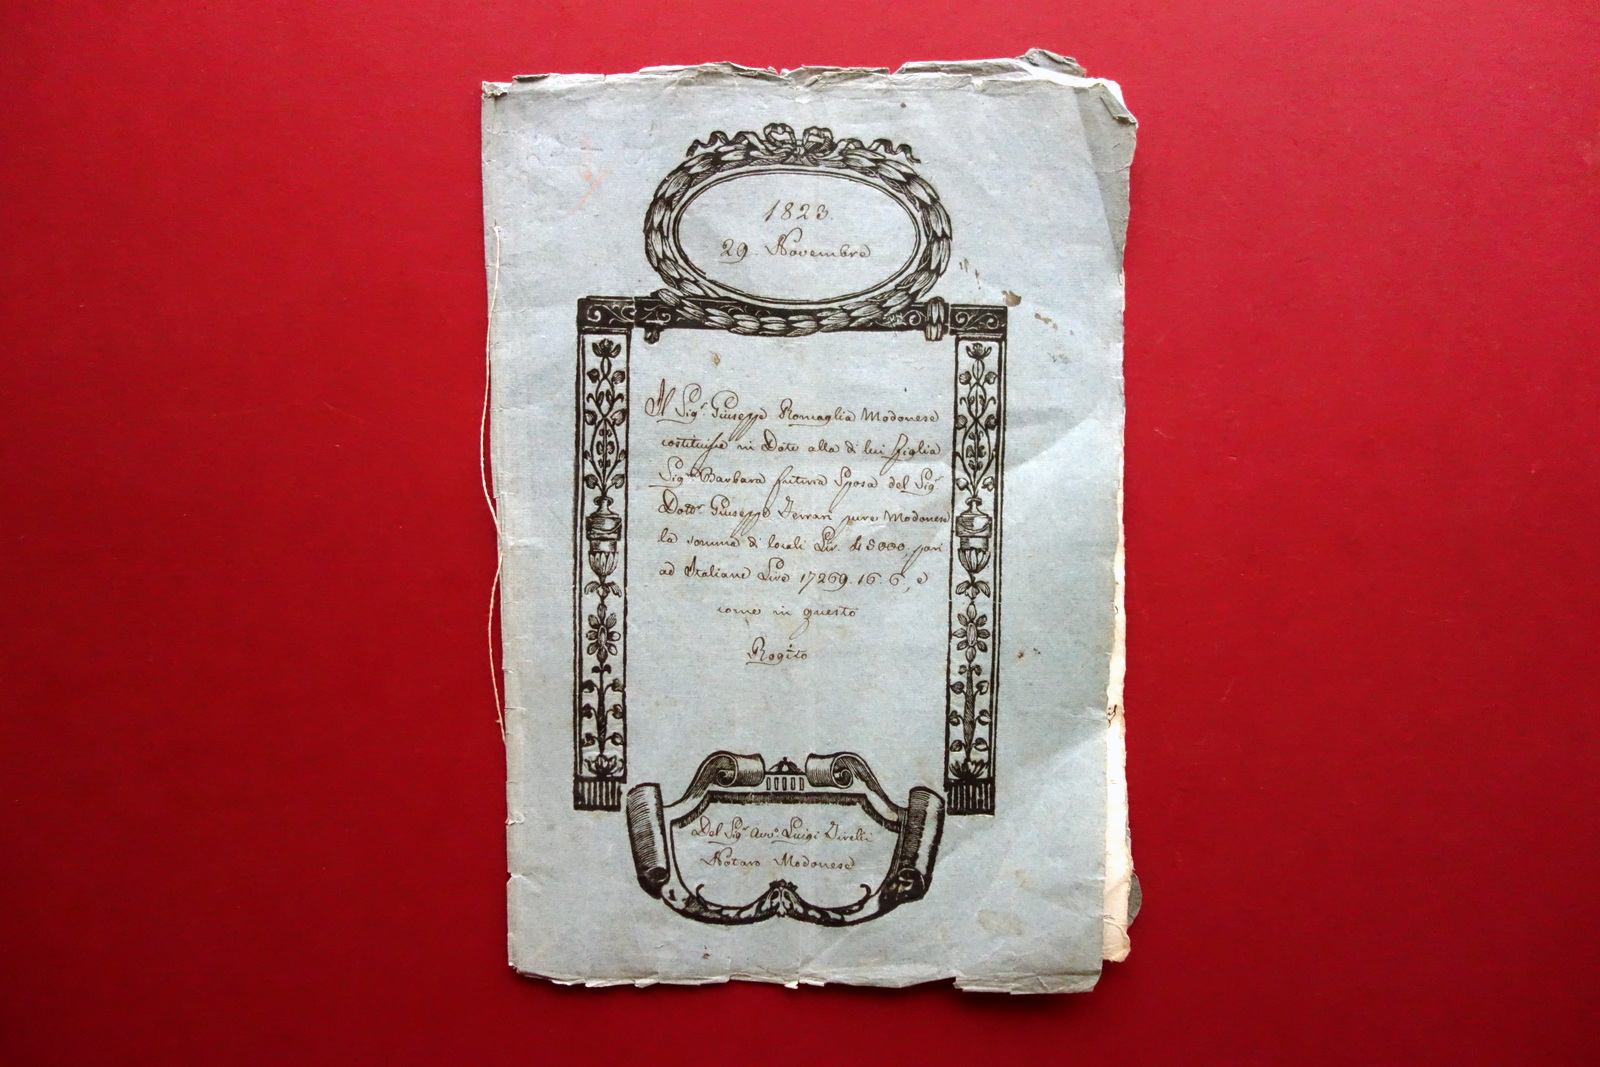 1823.
29. Novembre
Il Sigr. Giuseppe Romaglia Modonese
costituisce in Dote alla di lui figlia
Sigra Barbara futura Sposa del Sigr
Dottr. Giuseppe Ferrari pure Modonese
la somma di locali Liv. 45000, pari
ad Italiane Live 17269. 16. 6, e
come in questo
Rogito
Del Sigr. Avvo. Luigi
Notaro Modonese